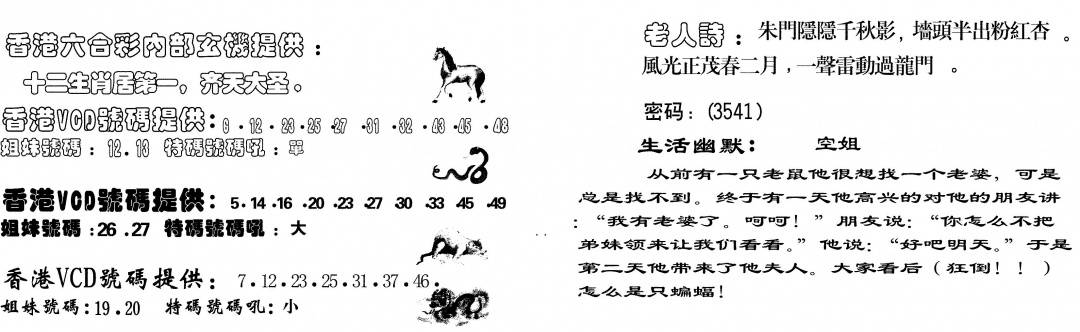 香港六合彩內部玄機提供：
十二生肖居第一，齐天大圣。
香港VCD號碼提供：6.12.23.25.27.31.32.43.45.48
姐妹號碼：12.13 特碼號碼吼：單
香港VCD號碼提供：5.14.16.20.23.27.30.33.45.49
姐妹號碼：26.27 特碼號碼吼：大
香港VCD號碼提供：7.12.23.25.31.37.46.
姐妹號碼：19.20 特碼號碼吼：小
老人詩：朱門隱隱千秋影，墻頭半出粉紅杏。
風光正茂春二月，一聲雷動過龍門。
密码：(3541)
生活幽默： 空姐
从前有一只老鼠他很想找一个老婆，可是
总是找不到。终于有一天他高兴的对他的朋友讲
：“我有老婆了。呵呵！”朋友说：“你怎么不把
弟妹领来让我们看看。”他说：“好吧明天。”于是
第二天他带来了他夫人。大家看后（狂倒！！）
怎么是只蝙蝠！